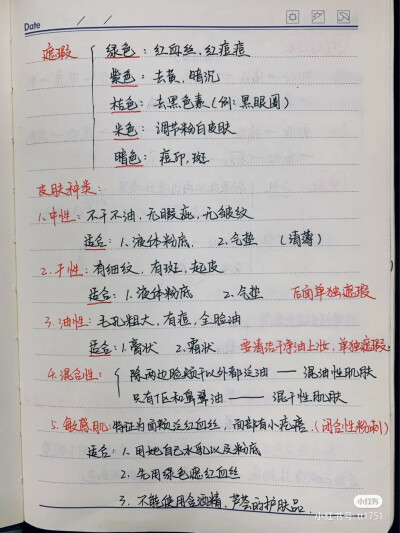 Date / /
遮瑕 绿色：红血丝，红痘痘
紫色：去黄，暗沉
桔色：去黑色素（例：黑眼圈）
米色：调节粉白皮肤
暗色：痘印，斑
皮肤种类：
1.中性：不干不油，无瑕疵，无皱纹
适合：1.液体粉底， 2.气垫 （清薄）
2.干性：有细纹，有斑，起皮
适合：1.液体粉底 2.气垫 后面单独遮瑕
3.油性：毛孔粗大，有痘，全脸油
适合：1.膏状 2.霜状 要清洁干净油上妆，单独遮瑕。
4.混合性： 除两边脸颊干以外都泛油 —— 混油性肌肤
只有T区和鼻翼油 —— 混干性肌肤
5.敏感肌：特征为面颊泛红血丝，面部有小疙瘩.（闭合性粉刺）
适合：1.用她自己水乳以及粉底
2.先用绿色遮红血丝
3.不能使用含酒精，芦荟的护肤品
小红书
小红书号